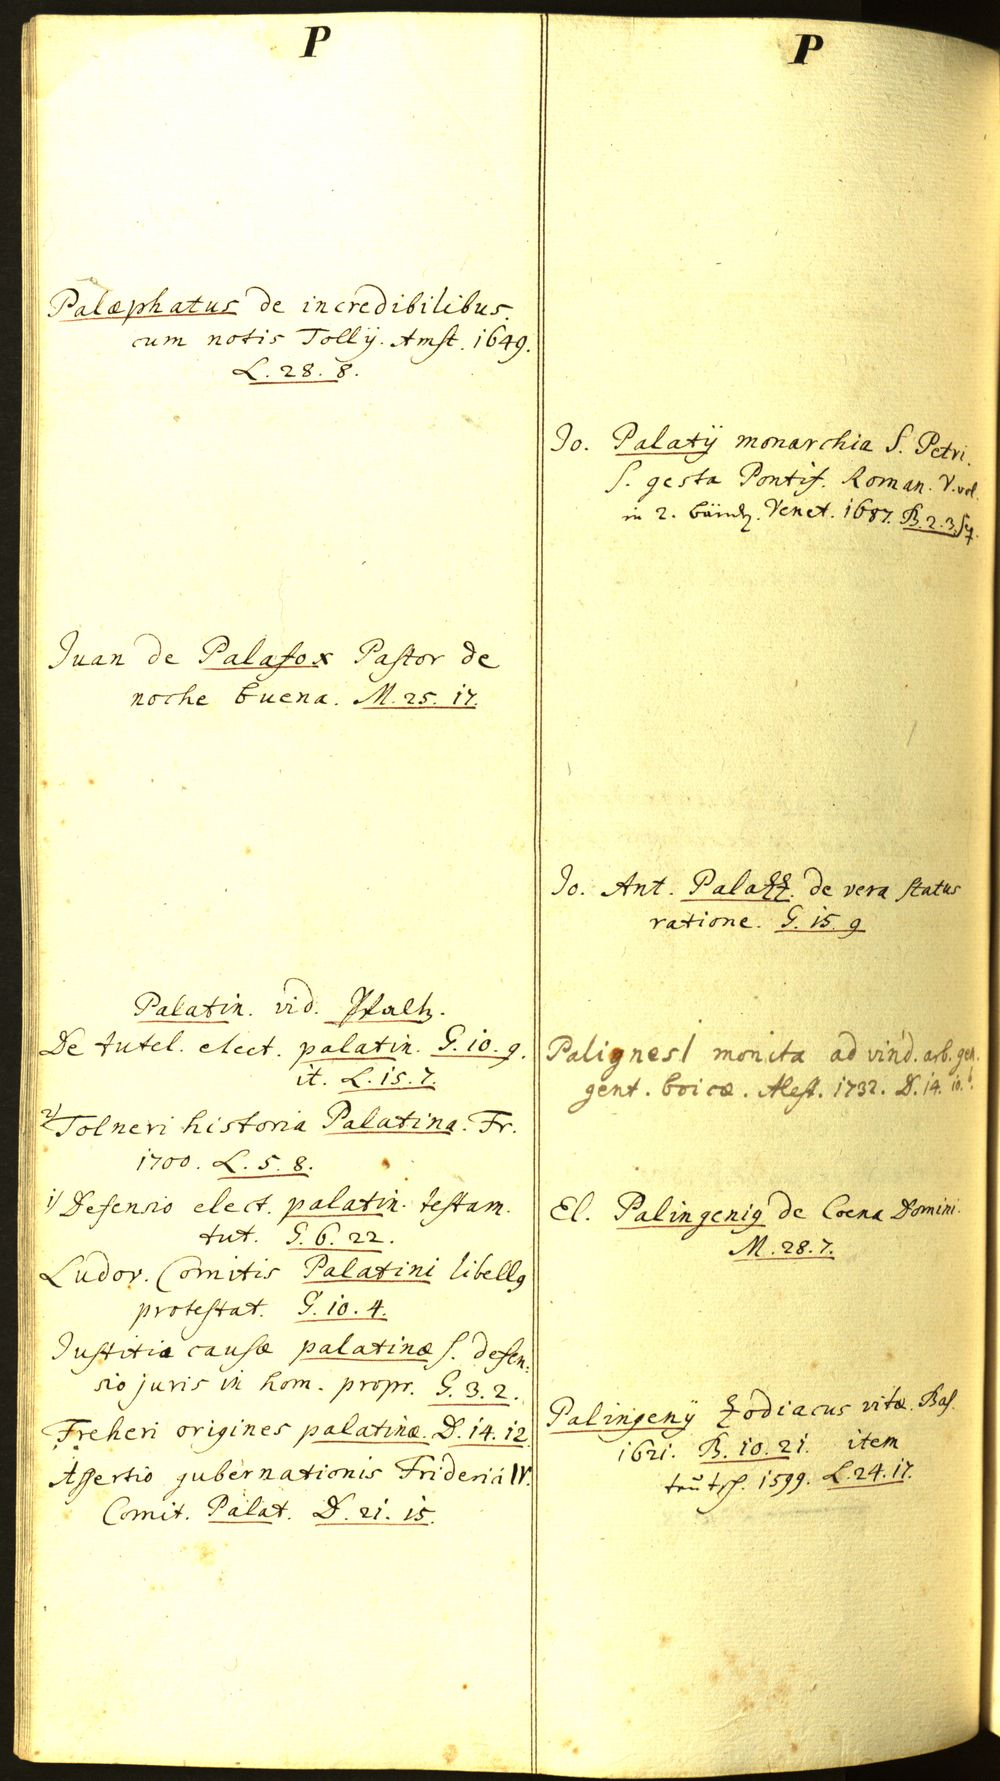 P
Palæphatus de incredibilibus.
cum notis Tollij. Amst. 1649.
L. 28. 8.
Juan de Palafox Pastor de
noche buena. M. 25. 17.
Palatin. vid. Pfaltz.
De tutel. elect. palatin. G. 10. 9.
it. L. 15. 7.
2) Tolneri historia Palatina. Fr.
1700. L. 5. 8.
1) Defensio elect. palatin. testam.
tut. G. 6. 22.
Ludov. Comitis Palatini libellq
protestat. G. 10. 4.
Justitia causæ palatinæ s. defen:
sio juris in hom. propr. G. 3. 2.
Freheri origines palatinæ. D. 14. 12
Assertio gubernationis Friderici IV.
Comit. Palat. D. 21. 15.
P
Jo. Palatij monarchia S. Petri.
S. gesta Pontif. Roman. V. vol.
in 2. bänd. Venet. 1687. B. 2. 3. sq.
Jo. Ant. Palazz. de vera status
ratione. G. 15. 9
Palignesj monita ad vind. arb. gen.
gent. boicæ. Alest. 1732. D. 14. 10.
El. Palingeniq de Coena Domini.
M. 28. 7.
Palingenij Zodiacus vitæ. Bas.
1621. B. 10. 21. item
teütsch. 1599. L. 24. 17.